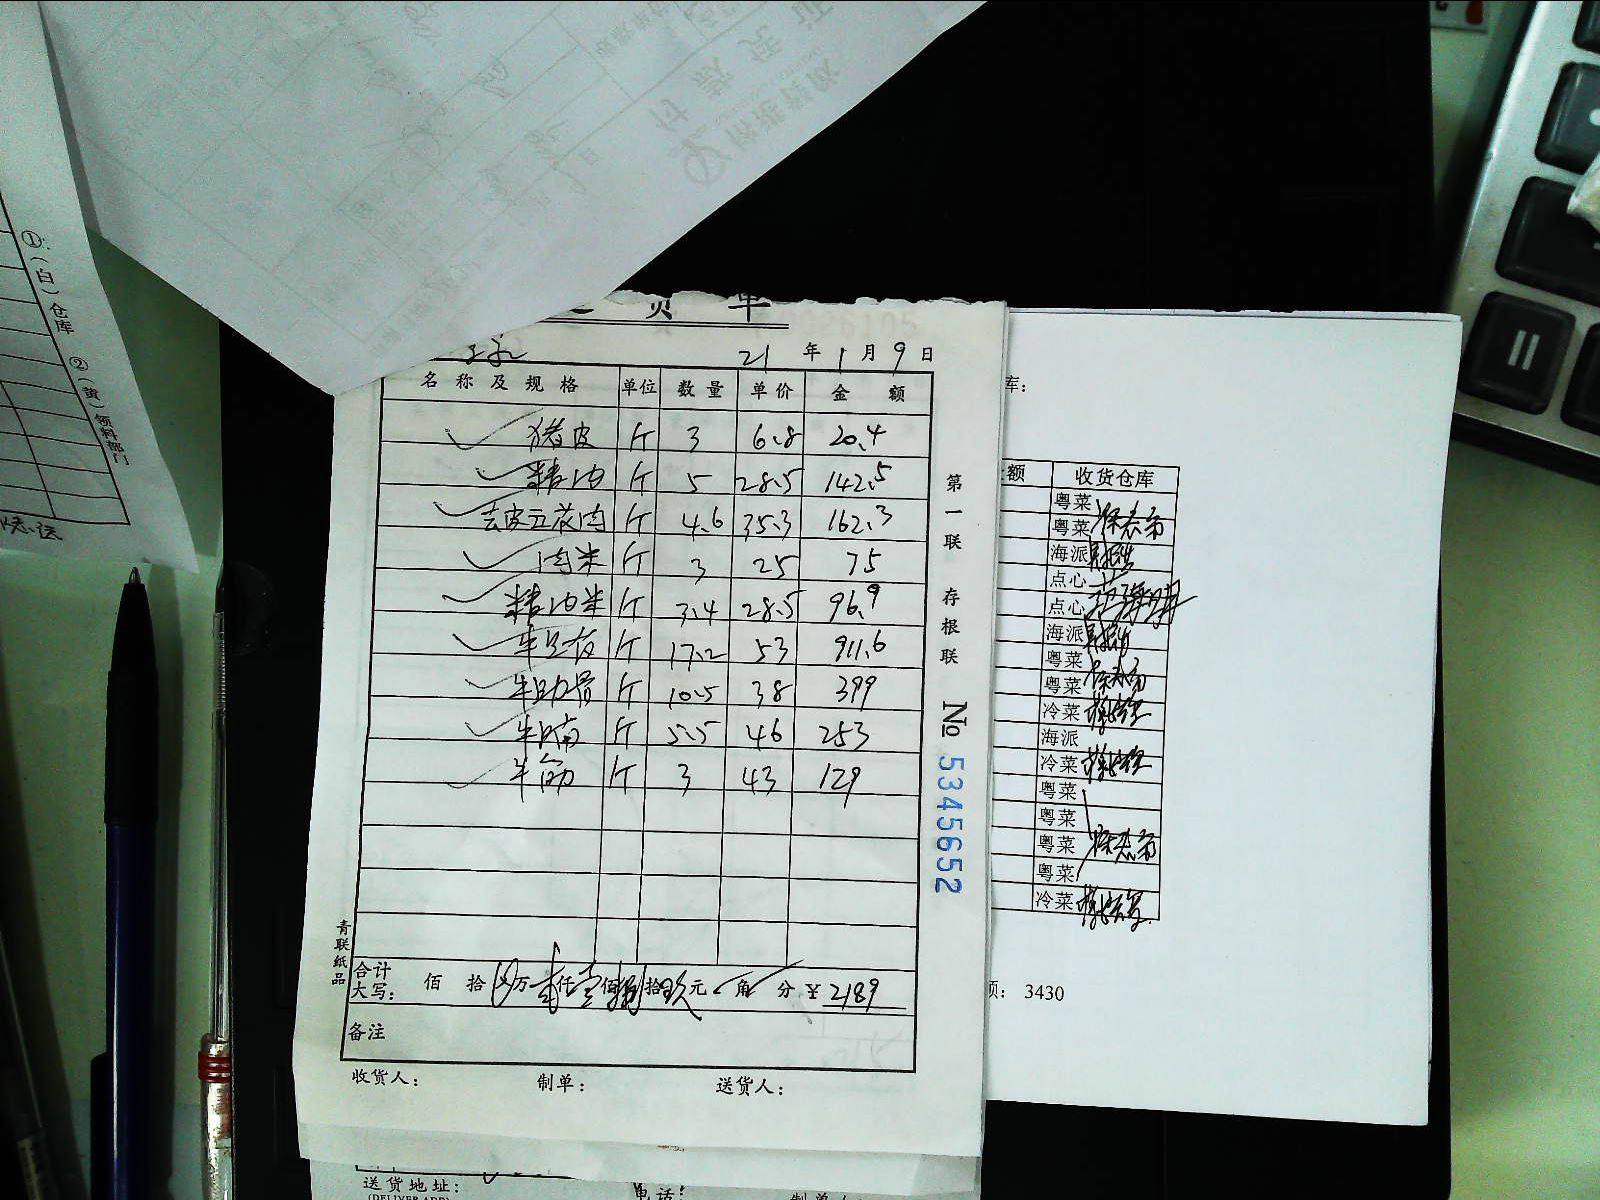 ①:(白)仓库 ②(黄)领料部门
货 单
21 年 1 月 9 日
名称及规格 单位 数量 单价 金额
猪皮 斤 3 6.8 20.4
精肉 斤 5 28.5 142.5
去皮五花肉 斤 4.6 35.3 162.3
肉米 斤 3 25 75
精肉米 斤 3.4 28.5 96.9
斤 17.2 53 911.6
牛肋骨 斤 10.5 38 399
牛腩 斤 5.5 46 253
牛筋 斤 3 43 129
合计
大写: 佰 拾 万 贰仟壹佰捌拾玖元 角 分 ¥ 2189
备注
收货人: 制单: 送货人:
青联纸品
第一联 存根联 No 5345652
库:
额 收货仓库
粤菜
粤菜
海派
点心
点心
海派
粤菜
粤菜
冷菜
海派
冷菜
粤菜
粤菜
粤菜
粤菜
冷菜
额: 3430
送货地址:
(DELIVER ADD)
电话: